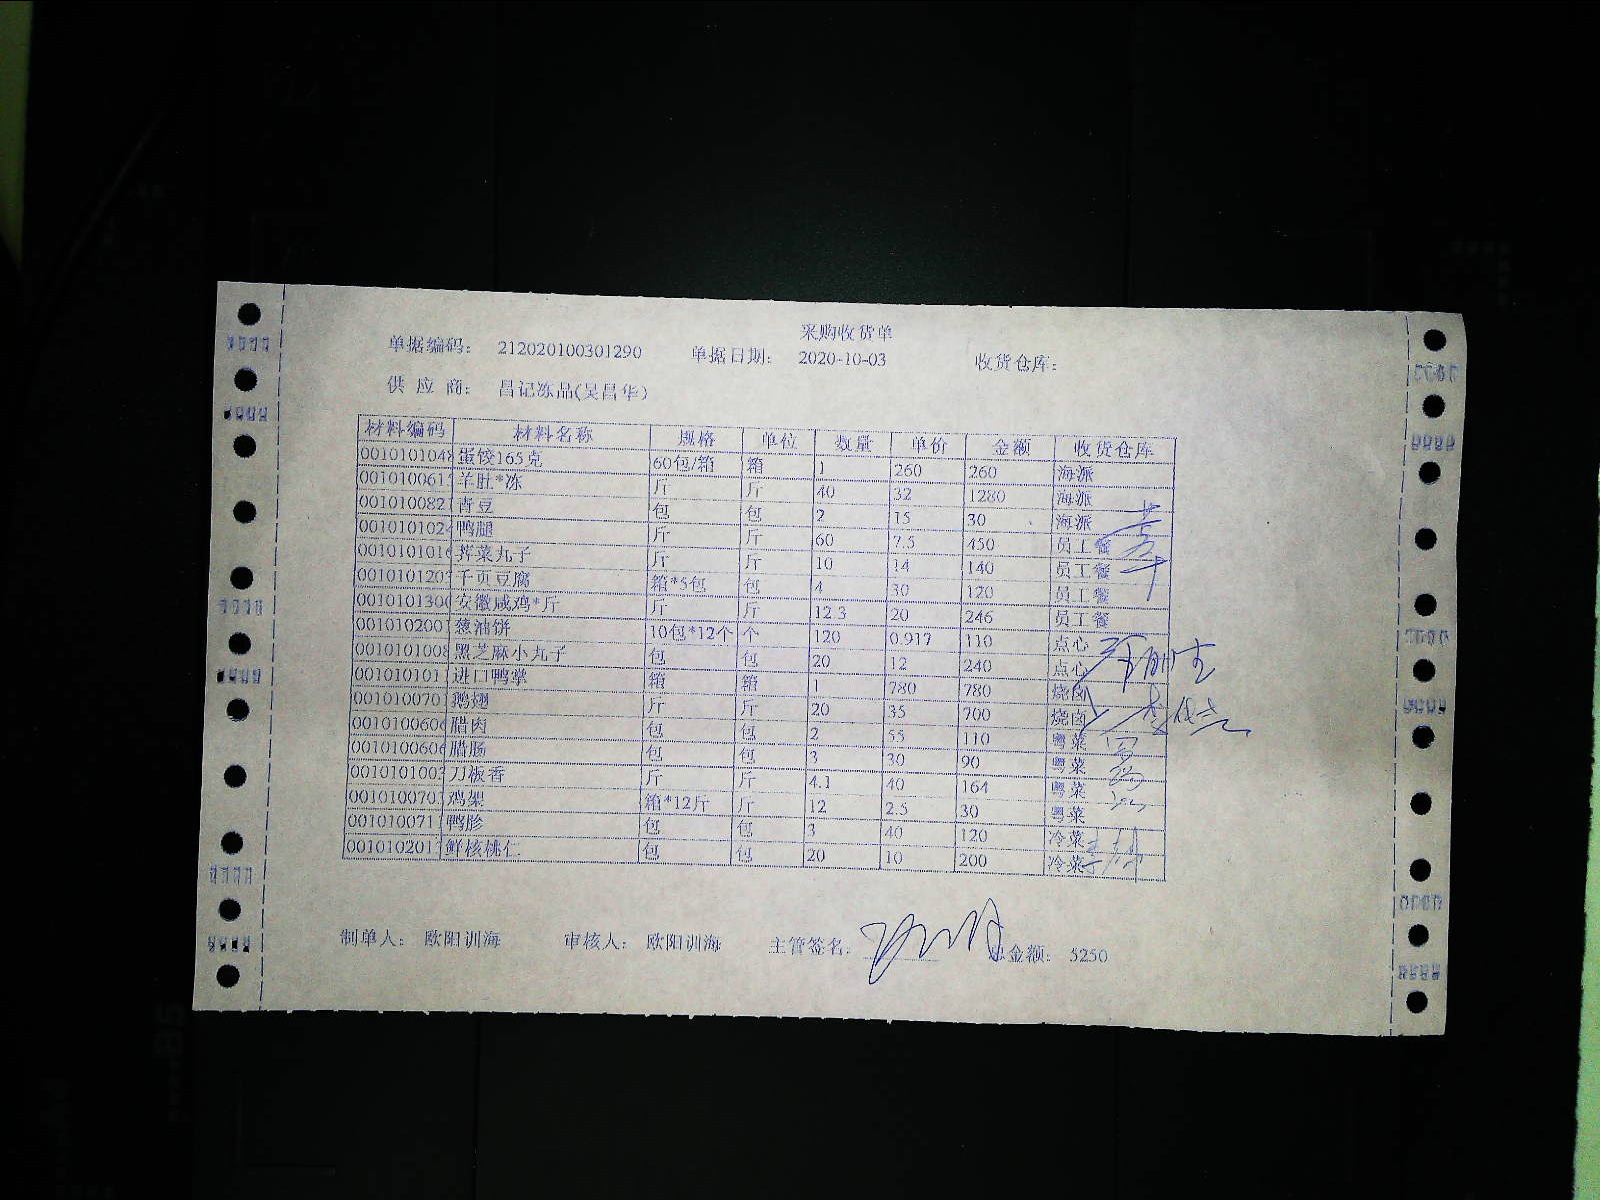 采购收货单
单据编码: 212020100301290 单据日期: 2020-10-03 收货仓库:
供 应 商: 昌记冻品(吴昌华)
材料编码 材料名称 规格 单位 数量 单价 金额 收货仓库
0010101048 蛋饺165克 60包/箱 箱 1 260 260 海派
001010061 羊肚*冻 斤 斤 40 32 1280 海派
001010082 青豆 包 包 2 15 30 海派
001010102 鸭腿 斤 斤 60 7.5 450 员工餐
001010101 荠菜丸子 斤 斤 10 14 140 员工餐
001010120 千页豆腐 箱*5包 包 4 30 120 员工餐
001010130 安徽咸鸡*斤 斤 斤 12.3 20 246 员工餐
001010200 葱油饼 10包*12个 个 120 0.917 110 点心
001010100 黑芝麻小丸子 包 包 20 12 240 点心
001010101 进口鸭掌 箱 箱 1 780 780 烧卤
001010070 鹅翅 斤 斤 20 35 700 烧卤
001010060 腊肉 包 包 2 55 110 粤菜
001010060 腊肠 包 包 3 30 90 粤菜
001010100 刀板香 斤 斤 4.1 40 164 粤菜
001010070 鸡架 箱*12斤 斤 12 2.5 30 粤菜
001010071 鸭胗 包 包 3 40 120 冷菜
001010201 鲜核桃仁 包 包 20 10 200 冷菜
制单人: 欧阳训海 审核人: 欧阳训海 主管签名: 总金额: 5250